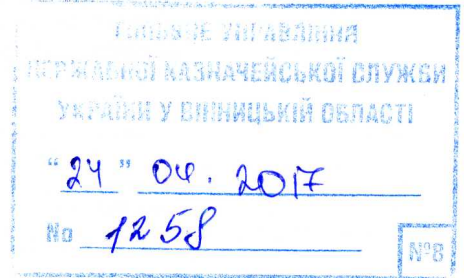 ГОЛОВНЕ УПРАВЛІННЯ
ДЕРЖАВНОЇ КАЗНАЧЕЙСЬКОЇ СЛУЖБИ
УКРАЇНИ У ВІННИЦЬКІЙ ОБЛАСТІ
“24” 04. 2017
№ 1258
№8